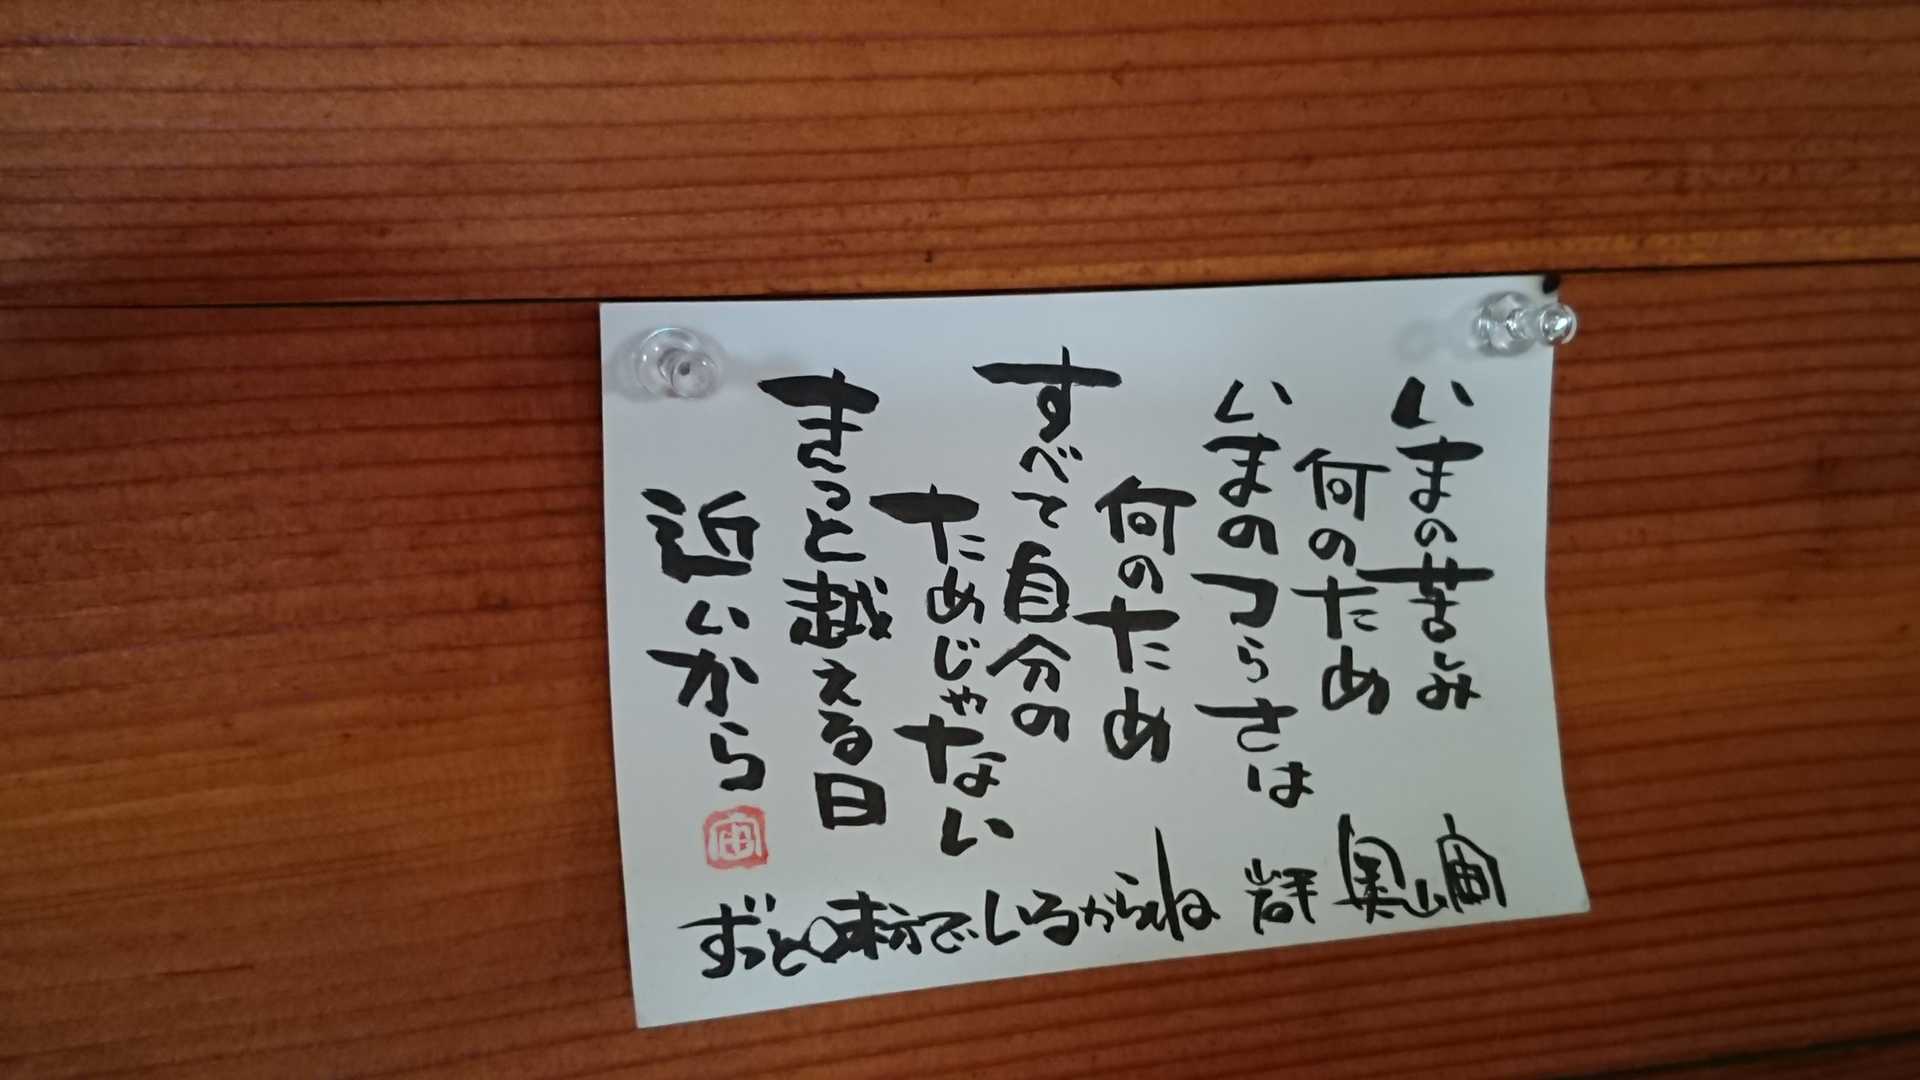 いまの苦しみ
何のため
いまのつらさは
何のため
すべて自分の
ためじゃない
きっと越える日
近いから
宙
ずっと味方でいるからね 岩手 奥山宙